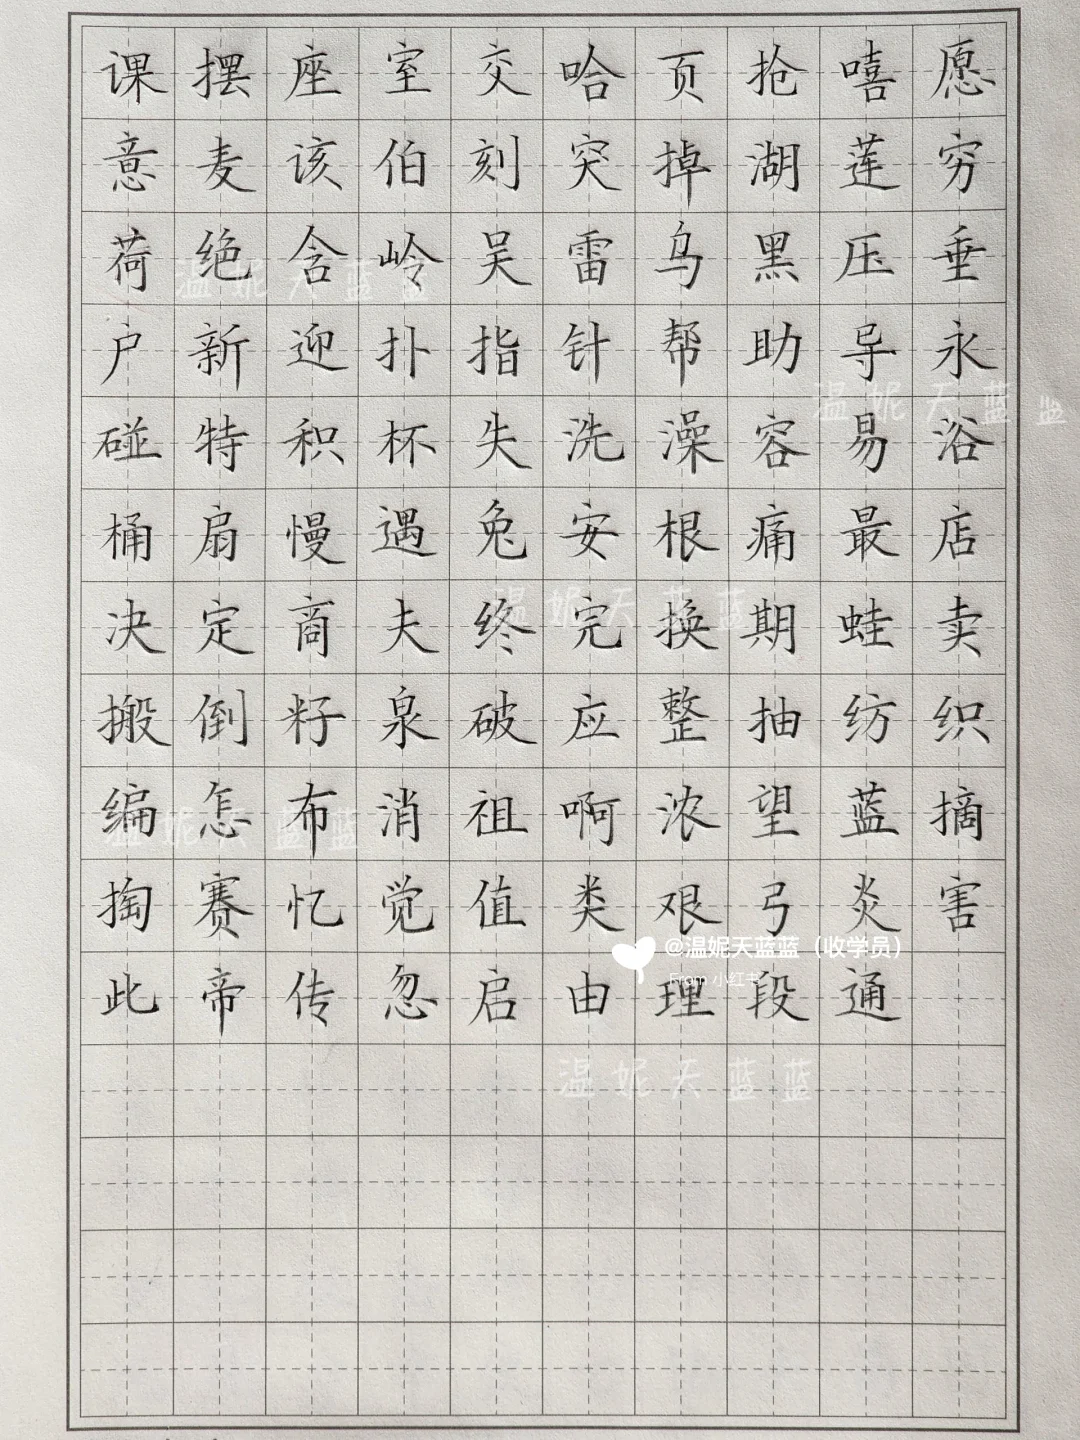 课摆座室交哈页抢嘻愿
意麦该伯刻突掉湖莲穷
荷绝含岭吴雷乌黑压垂
户新迎扑指针帮助导永
碰特积杯失洗澡容易浴
桶扇慢遇兔安根痛最店
决定商夫终完换期蛙卖
搬倒籽泉破应整抽纺织
编怎布消祖啊浓望蓝摘
掏赛忆觉值类艰弓炎害
此帝传忽启由理段通
温妮天蓝蓝
温妮天蓝蓝
温妮天蓝蓝
温妮天蓝蓝
@温妮天蓝蓝（收学员）
From 小红书
温妮天蓝蓝